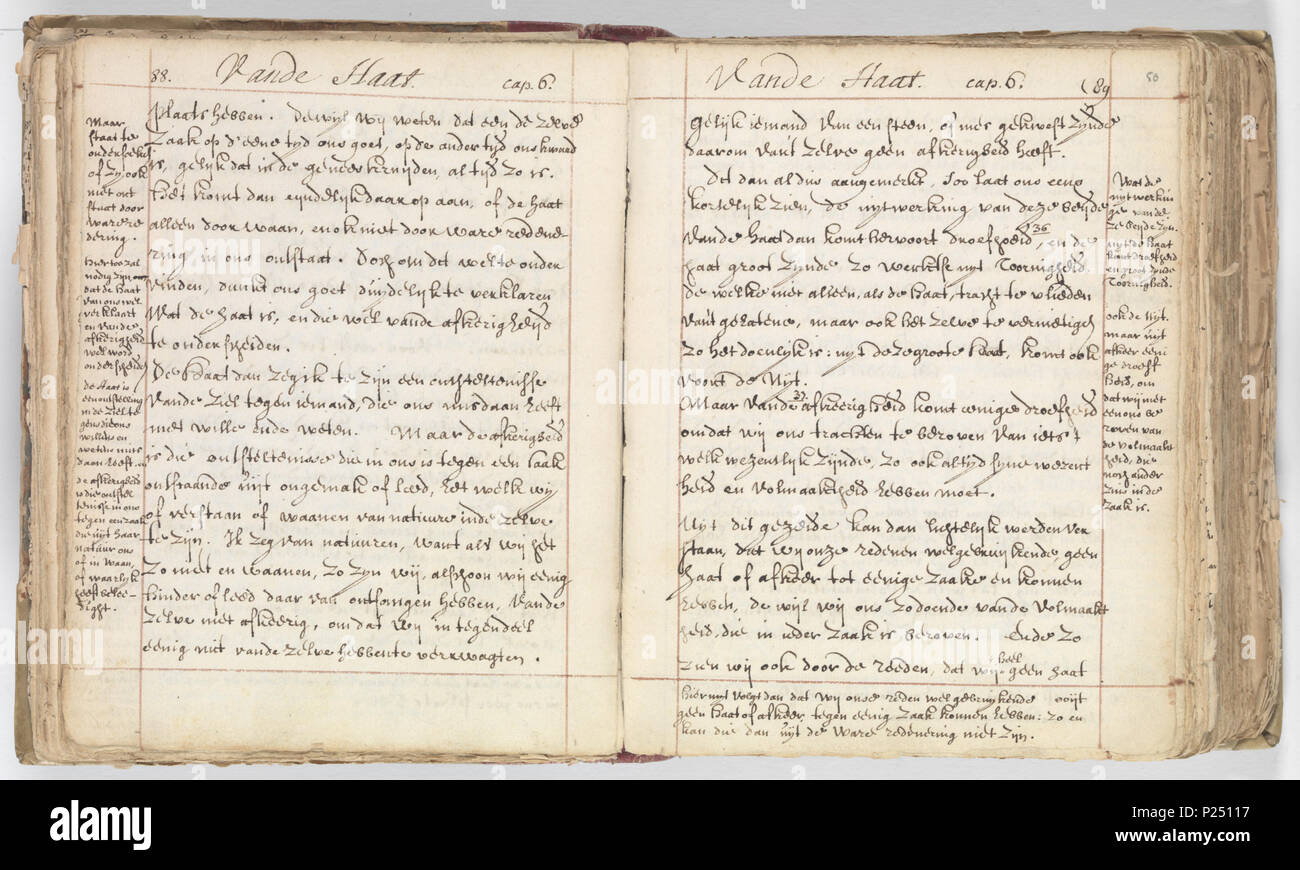 88. Vande Haat. cap. 6.
Maar
staat te
onderzoeken
of zij ook
niet ont
staat door
ware re
dering.
Hier toe zal
nodig zijn
dat de Haat
van ons wel
verklaart
en van de
afkerigheid
wel word
onderscheiden
de Haat is
een ontstelling
in de Ziel te
gens die ons
willens en
wetens mis
daan heeft. en
de afkerigheid
is die ontstel
tenisse in ons
tegen een zaak
die uijt haar
natuur ons
of in waan,
of waarlijk
heeft belee-
dight.
plaats hebben. dewijl wij weten dat een de zelve
zaak op d'eene tijd ons goet, op de ander tijd ons kwaad
is, gelijk dat in de geneeskruijden, altijd zo is.
Het komt dan eijndelijk daar op aan, of de haat
alleen door waan, en ook niet door ware redene-
ring in ons ontstaat. Doch om dit wel te onder
vinden, dunkt ons goet duijdelijk te verklaren
wat de haat is, en die wel vande afkerigheijd
te onderscheiden.
De Haat dan zeg ik te zijn een ontsteltenisse
vande ziel tegen iemand, die ons misdaan heeft
met wille ende weten. Maar de afkerigheid
is die ontsteltenisse die in ons is tegen een zaak
ontstaande uijt ongemak of leed, het welk wij
of verstaan of waanen van natuure in de zelve
te zijn. Ik zeg van natuuren, want als wij het
zo niet en waanen, zo zijn wij, alschoon wij eenig
hinder of leed daar van ontfangen hebben, vande
zelve niet afkeerig, om dat wij in tegendeel
eenig nut vande zelve hebben te verwagten.
Vande Haat. cap. 6. (89
50
gelijk iemand van een steen, of mes gekwest zijnde
daarom van't zelve geen afkerigheid heeft.
Dit dan aldus aangemerkt, soo laat ons eens
kortelijk zien, de uytwerking van deze beijde
vande haat dan komt hervoort droefheid, 36 en de
haat groot zijnde zo werkt se uijt Toornigheid.
de welke niet alleen, als de haat, tracht te vlieden
van't gehatene, maar ook het zelve te vernietigen
zo het doenlijk is: uijt deze groote Haat, komt ook
voort de Nijt.
Maar vande 37 afkeerigheid komt eenige droefheid
omdat wij ons trachten te beroven van iets 't
welk wezentlijk zijnde, zo ook altijd syne wezent
heid en volmaaktheid hebben moet.
Uijt dit gezeide kan dan lichtelijk werden ver
staan, dat wij onze redenen wel gebruijkende, geen
haat of afkeer tot eenige zaake en konnen
hebben, de wijl wij ons zodoende vande volmaakt
heid, die in ieder zaak is beroven. Ende zo
zien wij ook door de reeden, dat wij heel geen haat
Wat de
uijtwerkin
ge van de
ze beide zijn.
uijt de haat
komt droefheid
en groot zijnde
Toornigheid.
ook de Nijt.
maar uijt
afkeer eeni
ge droeft
heid, om
dat wij met
een ons be
roven van
de volmaakt
heid, die
noch ander
zins in de
zaak is.
hier uijt volgt dan dat wij onse reden wel gebruijkende ooijt
geen Haat of afkeer tegen eenig zaak konnen hebben: zo en
kan die dan uijt de ware redenering niet zijn.
alamy
Image ID: P25117
www.alamy.com